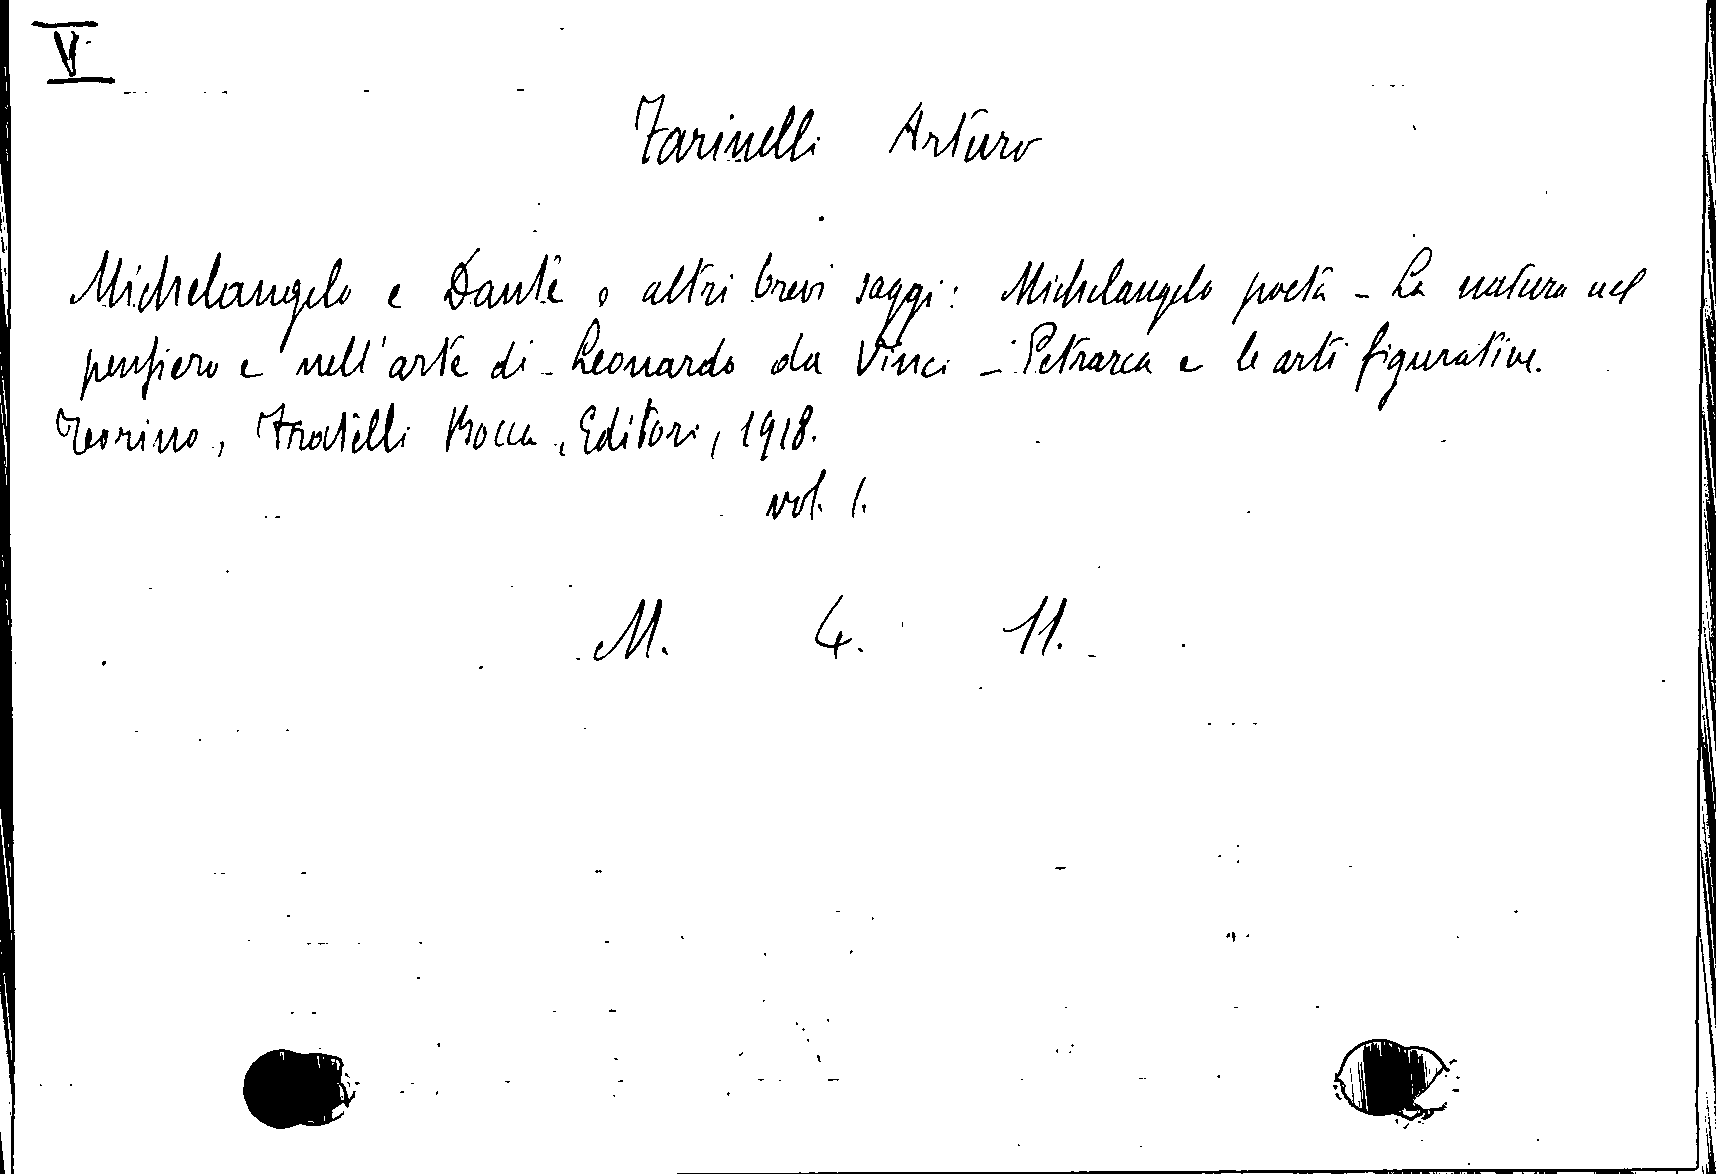 V
Farinelli Arturo
Michelangelo e Dante e altri brevi saggi: Michelangelo poeta - La natura nel
pensiero e nell'arte di Leonardo da Vinci - Petrarca e le arti figurative.
Torino, Fratelli Bocca, Editori, 1918.
vol. 1.
M. 4. 11.